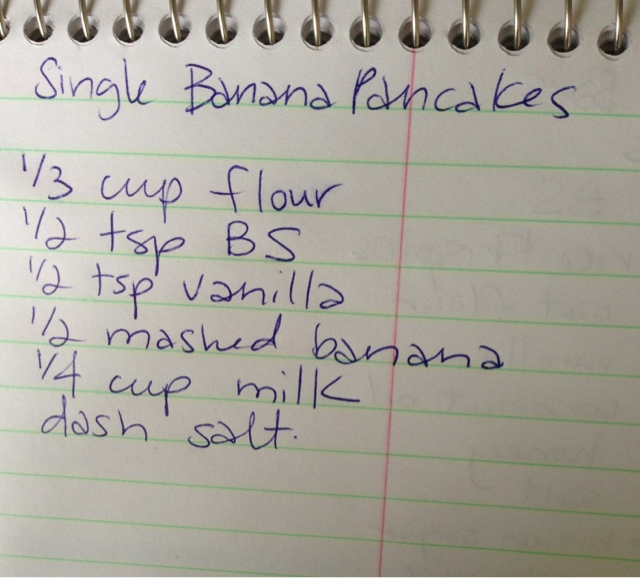 Single Banana Pancakes
1/3 cup flour
1/2 tsp BS
1/2 tsp vanilla
1/2 mashed banana
1/4 cup milk
dash salt.